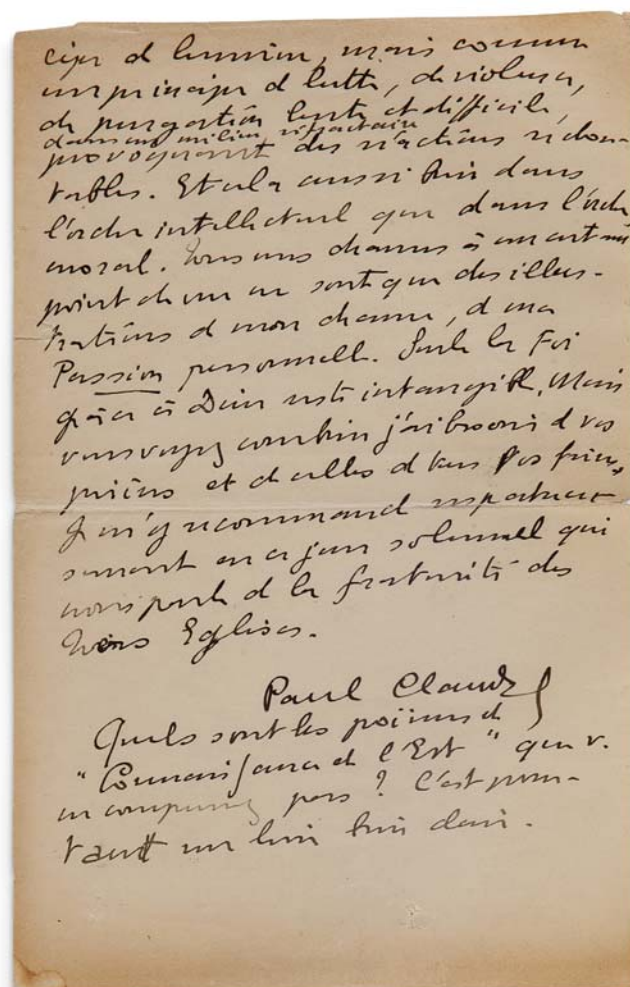 cipe de lumière, mais comme
un principe de lutte, de violence,
de purgation lente et difficile,
dans un milieu réfractaire
provoquant des réactions redou-
tables. Et cela aussi bien dans
l'ordre intellectuel que dans l'ordre
moral. Tous mes drames à un certain
point de vue ne sont que des illus-
trations de mon drame, de ma
Passion personnelle. Seule la Foi
grâce à Dieu reste intangible. Mais
vous voyez combien j'ai besoin de vos
prières et de celles de tous vos frères,
Je m'y recommande respectueu-
sement en ce jour solennel qui
nous parle de la fraternité des
trois Eglises.
Paul Claudel
Quels sont les poèmes de
"Connaissance de l'Est" que v.
ne comprenez pas ? C'est pour-
tant un livre bien clair.